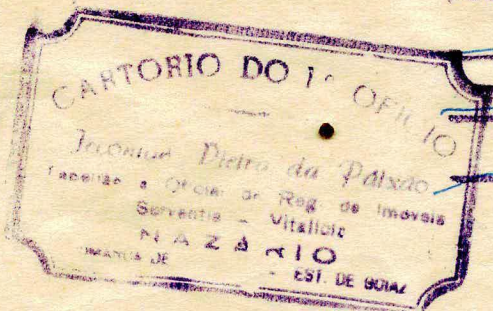 CARTORIO DO 1º OFICIO
da Paixão
Tabelião e Oficial do Reg. de Imoveis
Serventia - Vitalicia
NAZARIO
DE - EST. DE GOIAZ